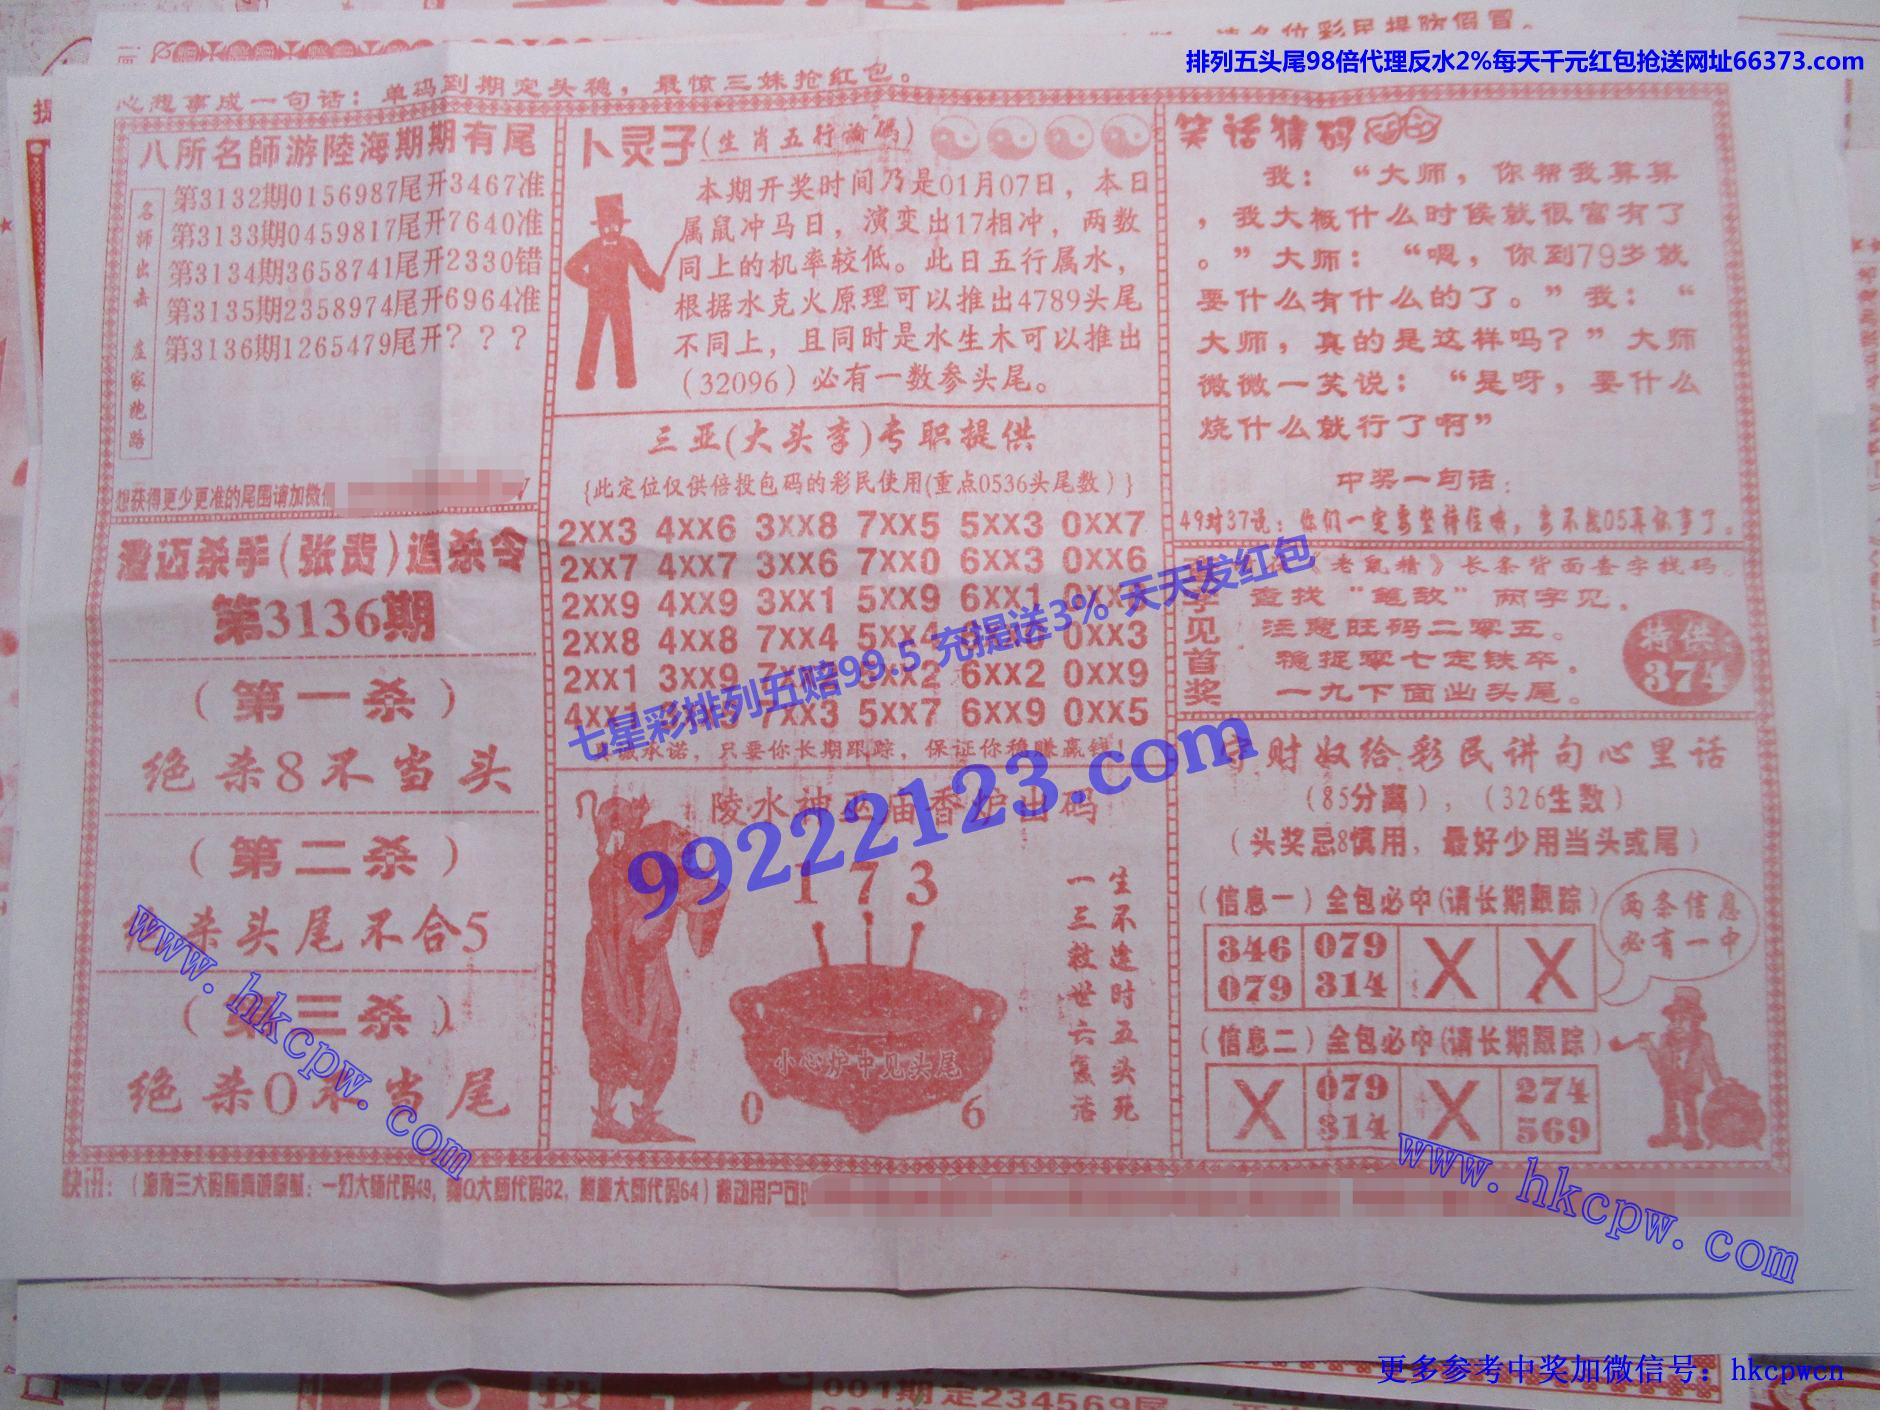 请各位彩民提防假冒。
排列五头尾98倍代理反水2%每天千元红包抢送网址66373.com
心想事成一句话：单码到期定头稳，最惊三妹抢红包。
八所名師游陸海期期有尾
名师出击 庄家跑路
第3132期0156987尾开3467准
第3133期0459817尾开7640准
第3134期3658741尾开2330错
第3135期2358974尾开6964准
第3136期1265479尾开？？？
想获得更少更准的尾围请加微信
澄迈杀手(张贵)追杀令
第3136期
（第一杀）
绝杀8不当头
（第二杀）
绝杀头尾不合5
（第三杀）
绝杀0不当尾
卜灵子(生肖五行論碼)
本期开奖时间乃是01月07日，本日
属鼠冲马日，演变出17相冲，两数
同上的机率较低。此日五行属水，
根据水克火原理可以推出4789头尾
不同上，且同时是水生木可以推出
（32096）必有一数参头尾。
三亚(大头李)专职提供
{此定位仅供倍投包码的彩民使用(重点0536头尾数）}
2XX3 4XX6 3XX8 7XX5 5XX3 0XX7
2XX7 4XX7 3XX6 7XX0 6XX3 0XX6
2XX9 4XX9 3XX1 5XX9 6XX1 0XX
2XX8 4XX8 7XX4 5XX4 0XX3
2XX1 3XX9 XX2 6XX2 0XX9
4XX1 7XX3 5XX7 6XX9 0XX5
承诺，只要你长期跟踪，保证你稳赚赢钱！
陵水神巫庙香炉出码
1 7 3
小心炉中见头尾
0 6
生不逢时五头死
一三救世六复活
笑话猜码
我：“大师，你帮我算算
，我大概什么时候就很富有了
。”大师：“嗯，你到79岁就
要什么有什么的了。”我：“
大师，真的是这样吗？”大师
微微一笑说：“是呀，要什么
烧什么就行了啊”
中奖一句话：
49对37说：你们一定要坚持住哦，要不然05再你事了。
字见首奖
《老鼠精》长条背面查字找码。
查找“笔敌”两字见。
注意旺码二零五。
稳捉零七定铁卒。
一九下面出头尾。
特供
374
守财奴给彩民讲句心里话
（85分离），（326生数）
（头奖忌8慎用，最好少用当头或尾）
（信息一）全包必中(请长期跟踪）
346 079 X X
079 314
两条信息
必有一中
（信息二）全包必中(请长期跟踪）
X 079 X 274
314 569
快讯：（海南三大码师真诚奉献：一幻大师代码49，大师代码82，大师代码64）移动用户可
七星彩排列五赔99.5 充提送3% 天天发红包
99222123.com
www.hkcpw.com
www.hkcpw.com
001期定234569尾
更多参考中奖加微信号：hkcpwcn